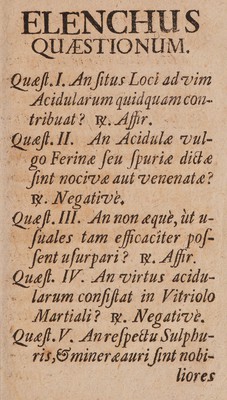 ELENCHUS
QUÆSTIONUM.
Quæſt. I. An ſitus Loci ad vim
Acidularum quidquam con-
tribuat? ℞. Affir.
Quæſt. II. An Acidulæ vul-
go Ferinæ ſeu ſpuriæ dictæ
ſint nocivæ aut venenatæ?
℞. Negativè.
Quæſt. III. An non æquè, ùt u-
ſuales tam efficaciter poſ-
ſent uſurpari? ℞. Affir.
Quæſt. IV. An virtus acidu-
larum conſiſtat in Vitriolo
Martiali? ℞. Negativè.
Quæſt. V. An reſpectu Sulphu-
ris, & mineræ auri ſint nobi-
liores